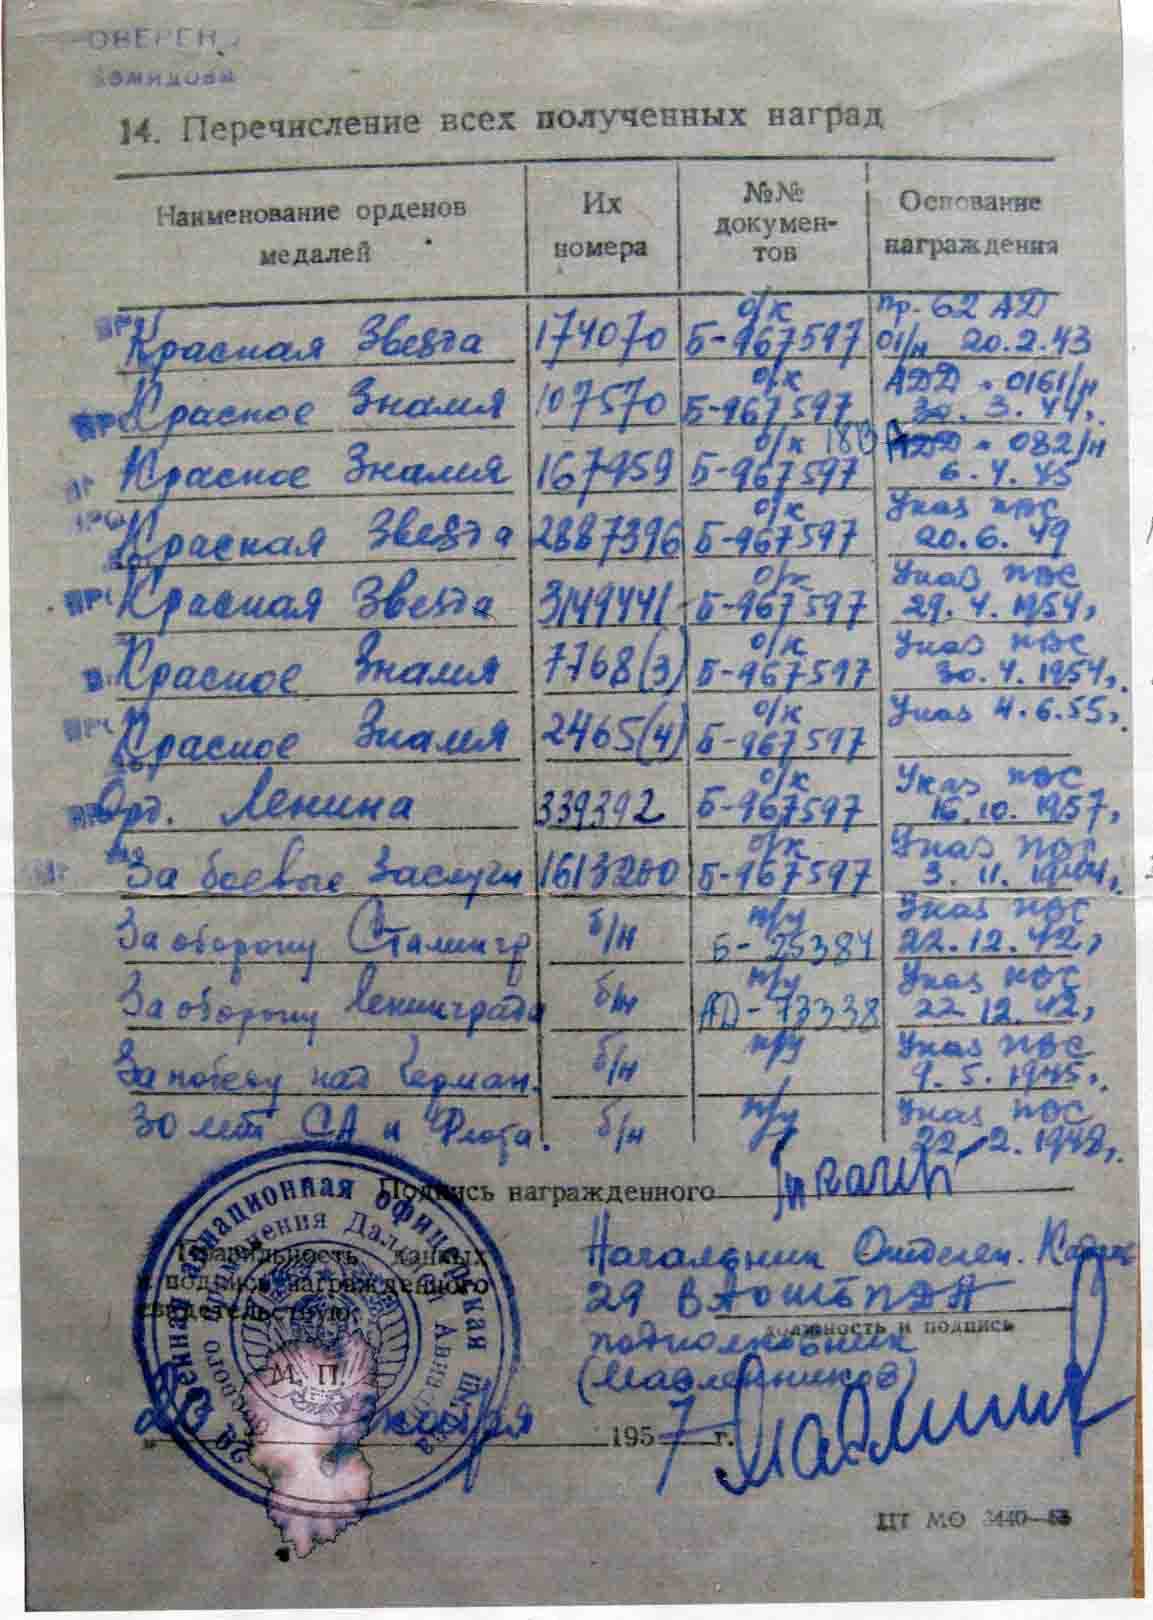 14. Перечисление всех полученных наград
Наименование орденов медалей
Их номера
№№ документов
Основание награждения
Красная Звезда 174070 о/к Б-967597 Пр. 62 АД 01/н 20.2.43
Красное Знамя 107570 о/к Б-967597 АДД - 0161/н 30.3.44,
Красное Знамя 167959 о/к Б-967597 18 ВА - 082/н 6.4.45
Красная Звезда 2887396 о/к Б-967597 Указ ПВС 20.6.49
Красная Звезда 3149441 о/к Б-967597 Указ ПВС 29.4.1954,
Красное Знамя 7768(3) о/к Б-967597 Указ ПВС 30.4.1954,
Красное Знамя 2465(4) о/к Б-967597 Указ 4.6.55,
Орд. Ленина 339392 о/к Б-967597 Указ ПВС 16.10.1957,
За боевые заслуги 1613200 о/к Б-967597 Указ ПВС 3.11.1944,
За оборону Сталингр б/н п/у Б-25384 Указ ПВС 22.12.42,
За оборону Ленинграда б/н п/у АД-73338 Указ ПВС 22.12.42,
За победу над Герман. б/н п/у Указ ПВС 9.5.1945,
30 лет СА и Флота. б/н п/у Указ ПВС 22.2.1948,
Подпись награжденного
Правильность данных
и подпись награжденного
свидетельствую:
Начальник Отделен. Кадров
29 ВАОШ
должность и подпись
подполковник
(Мавленников)
М. П.
1957 г.
ЦТ МО 3440